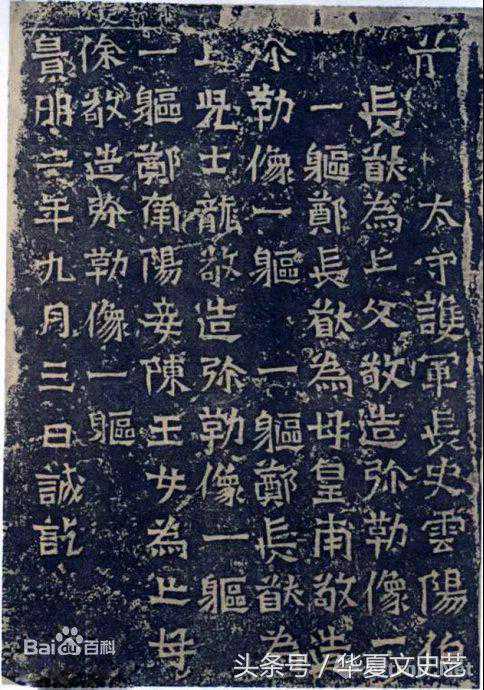 太守護軍長史雲陽伯
長猷為亡父敬造弥勒像一
一軀鄭長猷為母皇甫敬造
弥勒像一軀 一軀鄭長猷為
亡兒士龍敬造弥勒像一軀
一軀鄭南陽妾陳玉女為亡母
徐敬造弥勒像一軀
景明二年九月三日誡訖
Bai百科
头条号/华夏文史艺